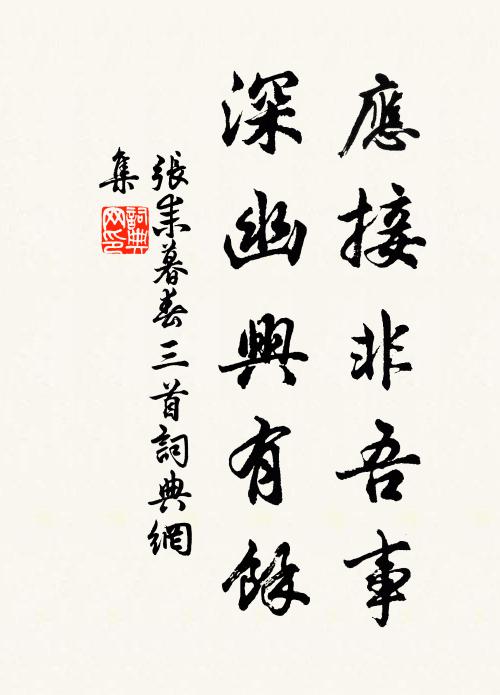 應接非吾事
深幽興有餘
張耒暮春三首詞典網
集
詞典
网印